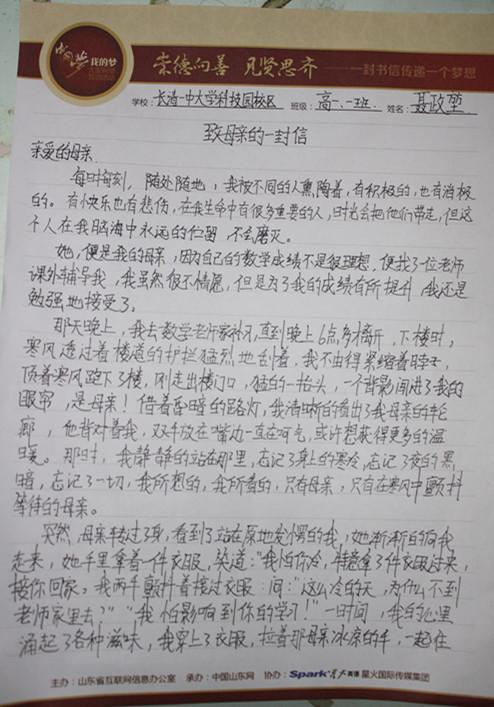 中国梦 我的梦
崇德向善 见贤思齐 一封书信传递一个梦想
学校：长清一中大学科技园校区 班级：高一、一班 姓名：聂政堃
致母亲的一封信
亲爱的母亲
每时每刻，随处随地，我被不同的人熏陶着，有积极的，也有消极
的。有快乐也有悲伤，在我生命中有很多重要的人，时光会把他们带走，但这
个人在我脑海中永远的位置，不会磨灭。
她，便是我的母亲，因为自己的数学成绩不是很理想，便找了位老师
课外辅导我，我虽然很不情愿，但是为了我的成绩有所提升，我还是
勉强地接受了。
那天晚上，我去数学老师家补习，直到晚上6点多离开，下楼时，
寒风透过着楼道的护栏猛烈地刮着，我不由得紧缩着脖子，
顶着寒风跑下了楼，刚走出楼门口，猛的一抬头，一个背影闯进了我的
眼帘，是母亲！借着昏暗的路灯，我清晰的看出了我母亲的轮
廓，他背对着我，双手放在嘴边一直在呵气，或许想获得更多的温
暖。那时，我静静的站在那里，忘记了身上的寒冷，忘记了夜的黑
暗，忘记了一切，我所想的，我所看的，只有母亲，只有在寒风中颤抖
等待的母亲。
突然，母亲转过了身，看到了站在原地发愣的我，她渐渐的向我
走来，她手里拿着一件衣服，笑道：“我怕你冷，特意拿了件衣服过来，
接你回家，我两手颤抖着接过衣服：问：“这么冷的天，为什么不到
老师家里去？”“我怕影响到你的学习！”一时间，我的心里
涌起了各种滋味，我穿上了衣服，拉着那母亲冰凉的手，一起往
主办：山东省互联网信息办公室 承办：中国山东网 协办：Spark 星火英语 星火国际传媒集团